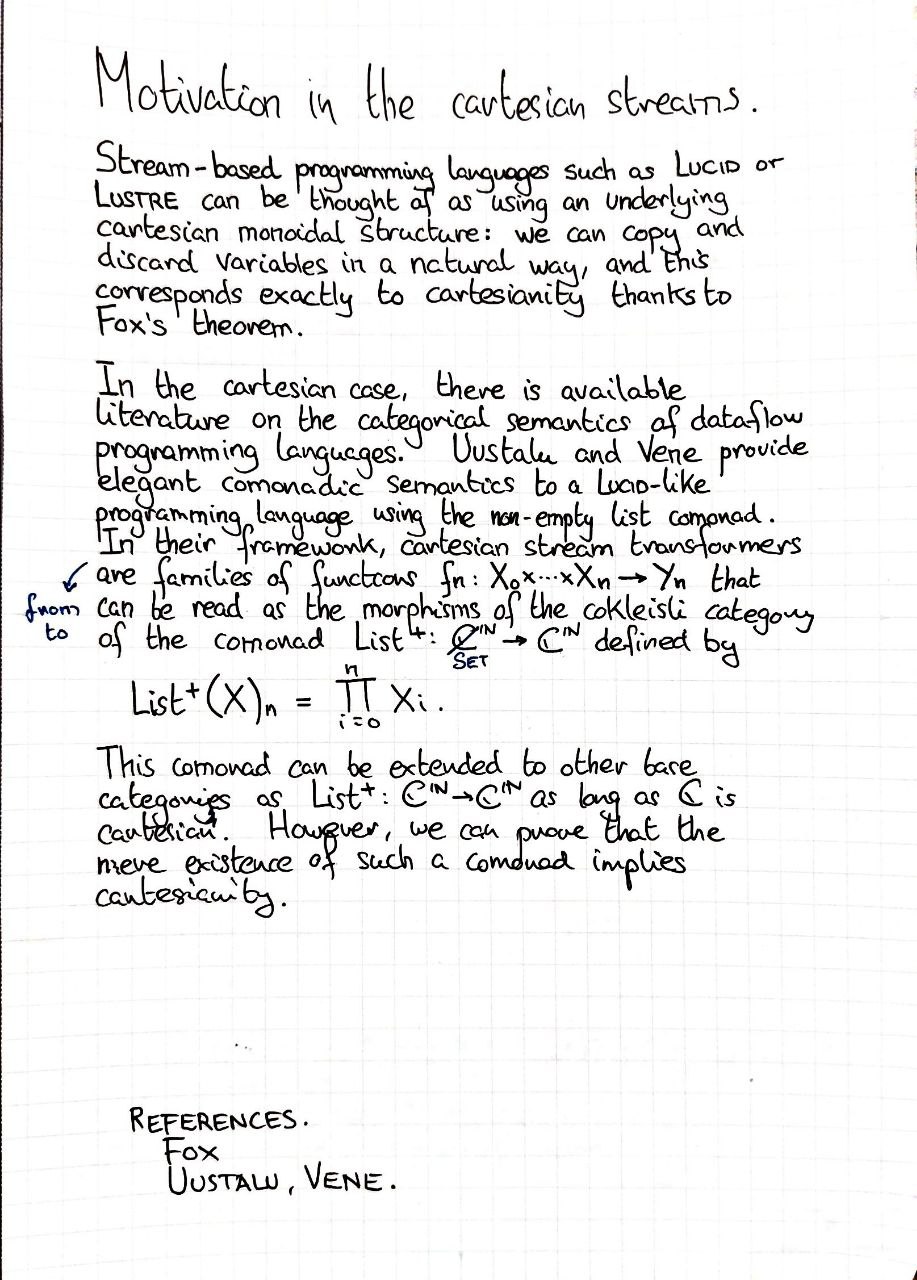 Motivation in the cartesian streams.
Stream-based programming languages such as LUCID or
LUSTRE can be thought of as using an underlying
cartesian monoidal structure: we can copy and
discard variables in a natural way, and this
corresponds exactly to cartesianity thanks to
Fox's theorem.
In the cartesian case, there is available
literature on the categorical semantics of dataflow
programming languages. Uustalu and Vene provide
elegant comonadic semantics to a LUCID-like
programming language using the non-empty list comonad.
In their framework, cartesian stream transformers
are families of functions fn: X₀×···×Xn → Yn that
from
can be read as the morphisms of the cokleisli category
to
of the comonad List⁺: ℂᴺ → ℂᴺ defined by
SET
List⁺(X)n = ∏ⁿᵢ₌₀ Xi.
This comonad can be extended to other base
categories as List⁺: ℂᴺ→ℂᴺ as long as ℂ is
cartesian. However, we can prove that the
mere existence of such a comonad implies
cartesianity.
REFERENCES.
FOX
UUSTALU, VENE.